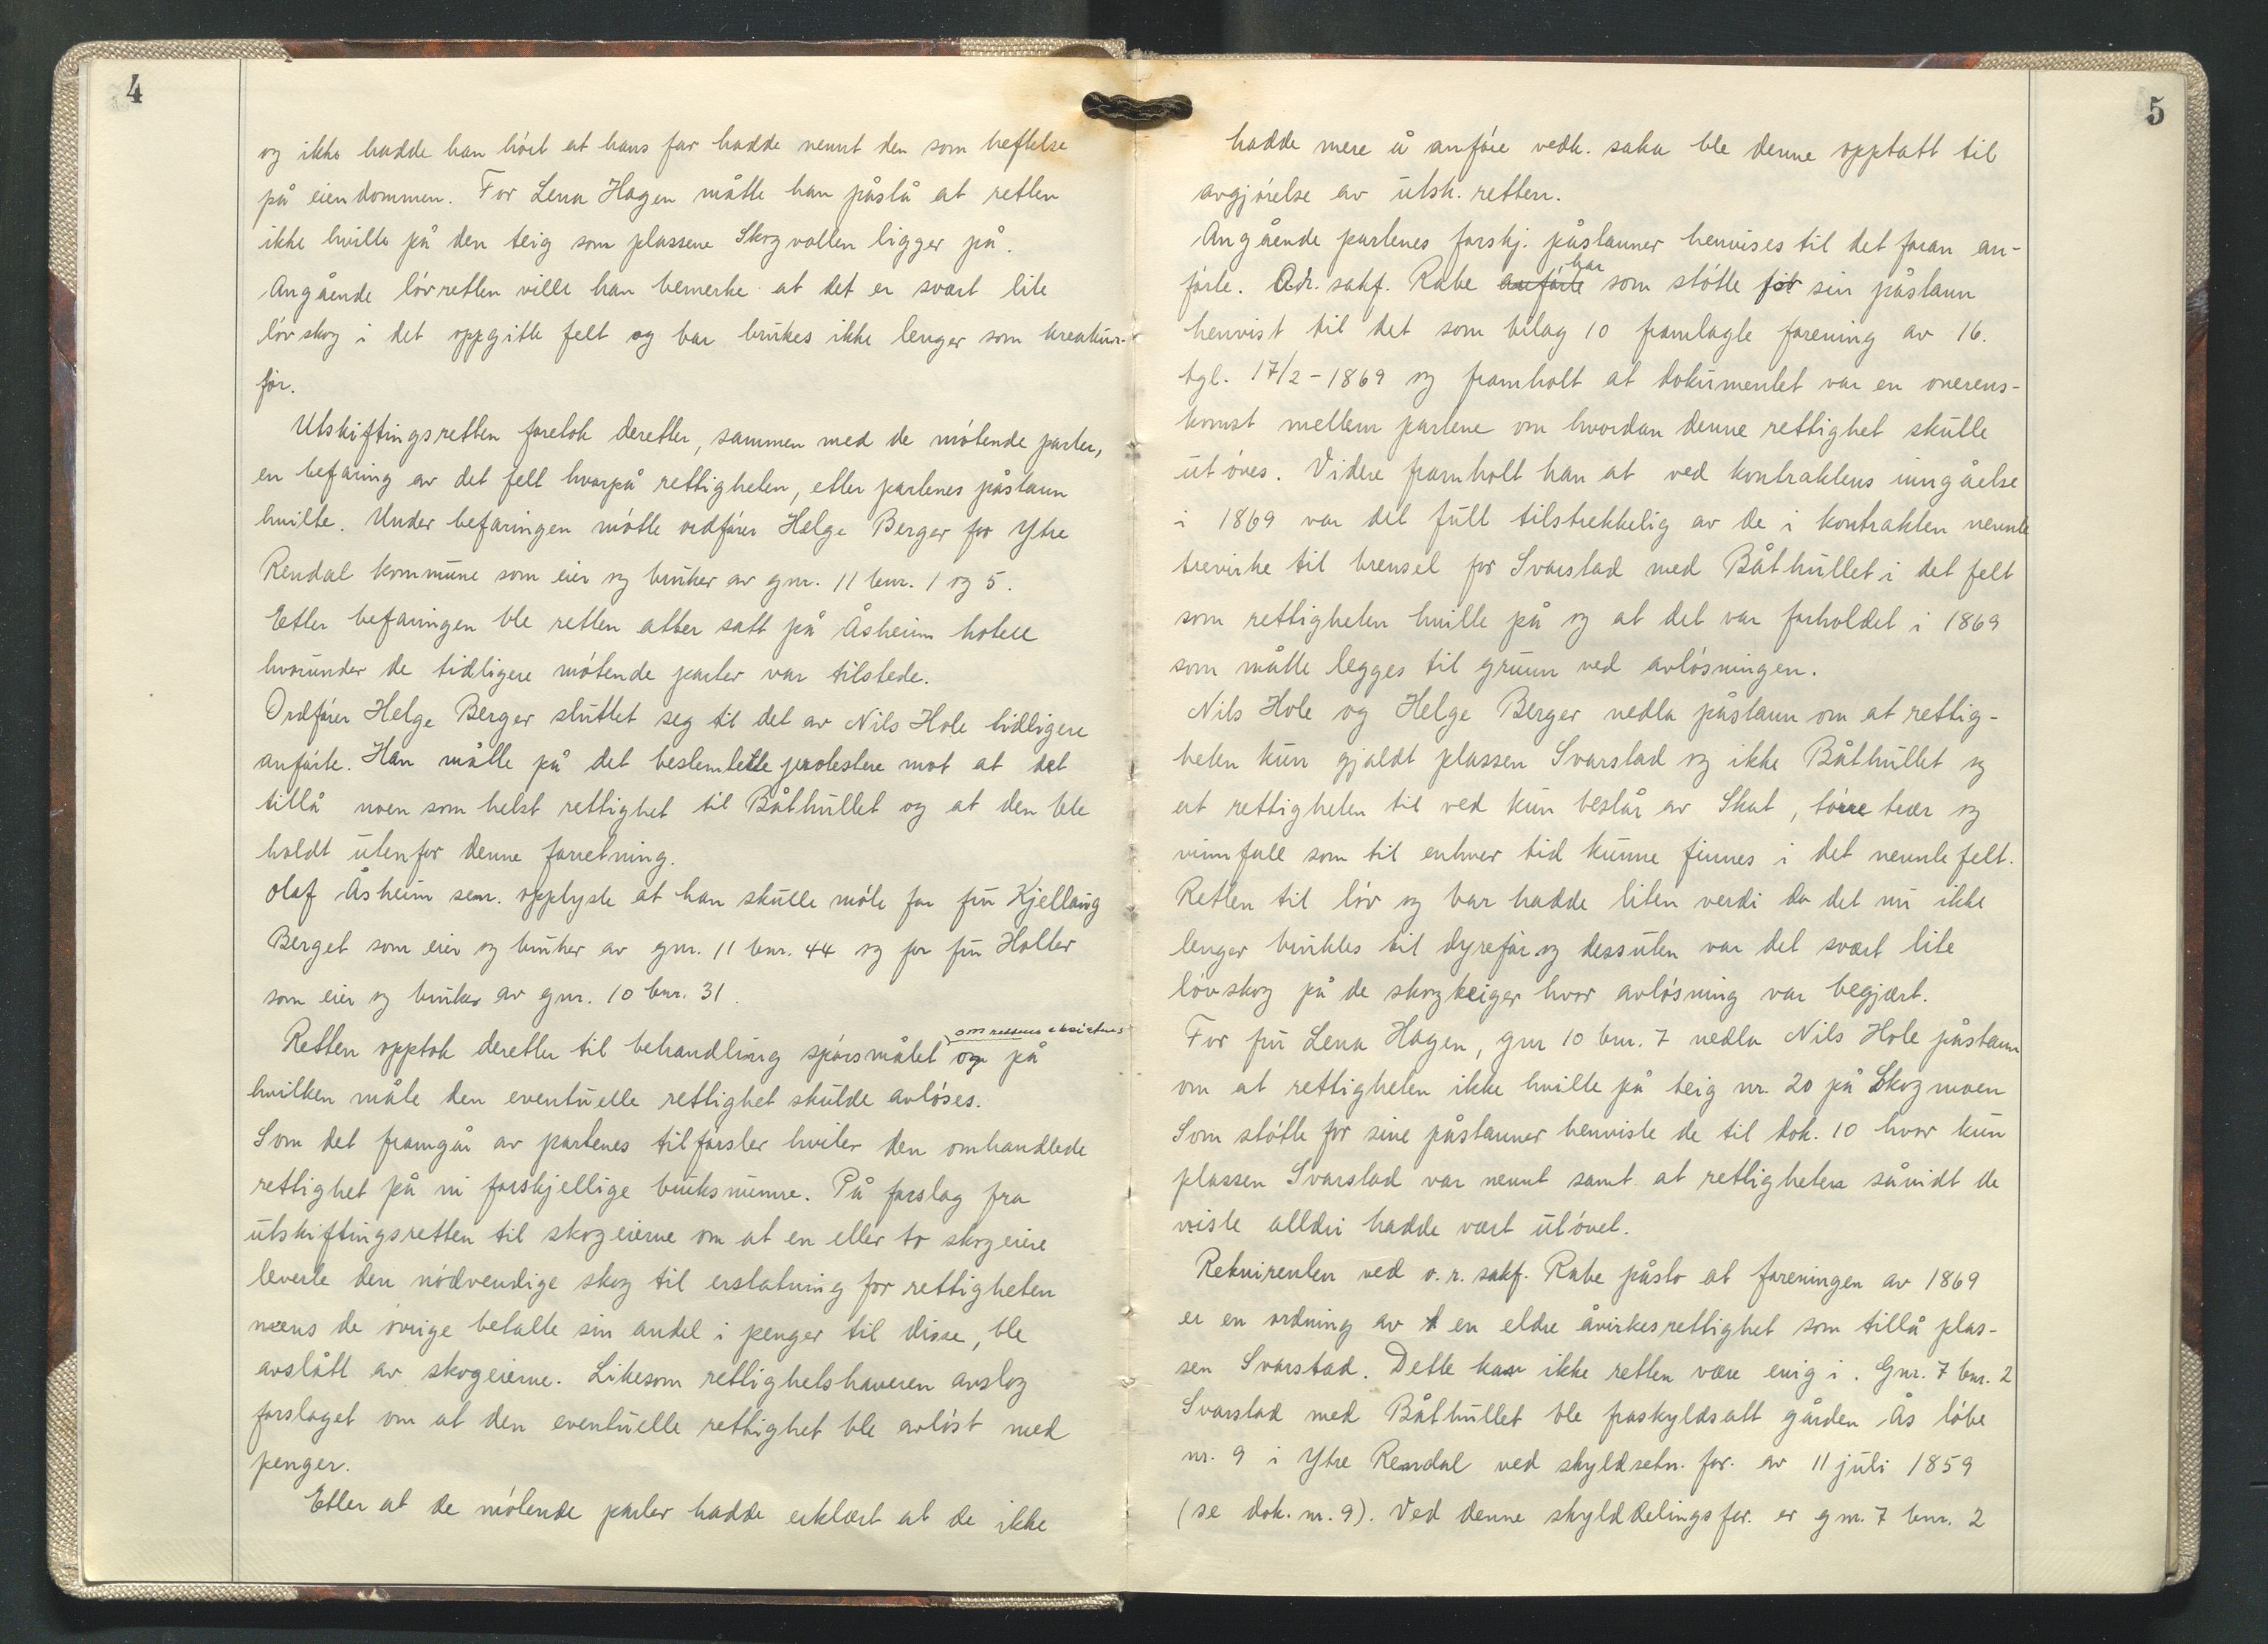 4
og ikke hadde han hört at hans far hadde nevnt den som heftelse
på eiendommen. For Lena Hagen måtte han påstå at retten
ikke hvilte på den teig som plassene Skogvollen ligger på.
Angående lövretten ville han bemerke at det er svært lite
lövskog i det oppgitte felt og bar brukes ikke lenger som kreatur-
fôr.
Utskiftingsretten foretok deretter, sammen med de mötende parter,
en befaring av det felt hvorpå rettigheten, etter partenes påstann
hvilte. Under befaringen mötte ordförer Helge Berger for Ytre
Rendal kommune som eier og bruker av gnr. 11 bnr. 1 og 5.
Etter befaringen ble retten atter satt på Åsheim hotell
hvorunder de tidligere mötende parter var tilstede.
Ordförer Helge Berger sluttet seg til det av Nils Hole tidligere
anförte. Han måtte på det bestemteste protestere mot at det
tillå noen som helst rettighet til Båthullet og at den ble
holdt utenfor denne forretning.
Olaf Åsheim senr. opplyste at han skulle möte for fru Kjellaug
Berget som eier og bruker av gnr. 11 bnr. 44 og for fru Holter
som eier og bruker av gnr. 10 bnr. 31.
om rettens eksistens
Retten opptok deretter til behandling spörsmålet og på
hvilken måte den eventuelle rettighet skulde avlöses.
Som det framgår av partenes tilförsler hviler den omhandlede
rettighet på ni forskjellige bruksnumre. På forslag fra
utskiftingsretten til skogeierne om at en eller to skogeiere
leverte den nödvendige skog til erstatning for rettigheten
mens de övrige betalte sin andel i penger til disse, ble
avslått av skogeierne. Likesom rettighetshaveren avslog
forslaget om at den eventuelle rettighet ble avlöst med
penger.
Etter at de mötende parter hadde erklært at de ikke
5
hadde mere å anföre vedk. saka ble denne opptatt til
avgjörelse av utsk. retten.
Angående partenes forskj. påstanner henvises til det foran an-
har
förte. O.r. sakf. Rabe anförte som stötte for sin påstann
henvist til det som bilag 10 framlagte forening av 16.
tgl. 17/2-1869 og framholt at dokumentet var en overens-
komst mellem partene om hvordan denne rettighet skulle
utöves. Videre framholt han at ved kontraktens inngåelse
i 1869 var det fullt tilstrekkelig av de i kontrakten nevnte
trevirke til brensel for Svarstad med Båthullet i det felt
som rettigheten hvilte på og at det var forholdet i 1869
som måtte legges til grunn ved avlösningen.
Nils Hole og Helge Berger nedla påstann om at rettig-
heten kun gjaldt plassen Svarstad og ikke Båthullet og
at rettigheten til ved kun består av Skat, törre trær og
vinnfall som til enhver tid kunne finnes i det nevnte felt.
Retten til löv og bar hadde liten verdi da det nu ikke
lenger bruktes til dyrefôr og dessuten var det svært lite
lövskog på de skogteiger hvor avlösning var begjært.
For fru Lena Hagen, gnr 10 bnr. 7 nedla Nils Hole påstann
om at rettigheten ikke hvilte på teig nr. 20 på Skogmoen
Som stötte for sine påstanner henviste de til dok. 10 hvor kun
plassen Svarstad var nevnt samt at rettigheten såvidt de
viste alldri hadde vært utövet.
Rekvirenten ved o.r. sakf. Rabe påsto at foreningen av 1869
er en ordning av en eldre åvirkesrettighet som tillå plas-
sen Svarstad. Dette kan ikke retten være enig i. Gnr. 7 bnr. 2
Svarstad med Båthullet ble fraskyldsatt gården Ås löbe
nr. 9 i Ytre Rendal ved skyldsetn. for. av 11 juli 1859
(se dok. nr. 9). Ved denne skylddelingsfor. er gnr. 7 bnr. 2